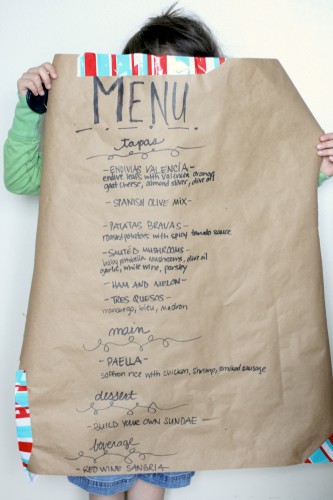 MENU
tapas
- ENDIVIAS VALENCIA -
endive leaves with valencia oranges
goat cheese, almond sliver, olive oil
- SPANISH OLIVE MIX -
- PATATAS BRAVAS -
roasted potatoes with spicy tomato sauce
- SAUTÉD MUSHROOMS -
baby portabella mushrooms, olive oil
garlic, white wine, parsley
- HAM AND MELON -
- TRES QUESOS -
manchego, bleu,
main
- PAELLA -
saffron rice with chicken, shrimp, smoked sausage
dessert
- BUILD YOUR OWN SUNDAE -
beverage
- RED WINE SANGRIA -